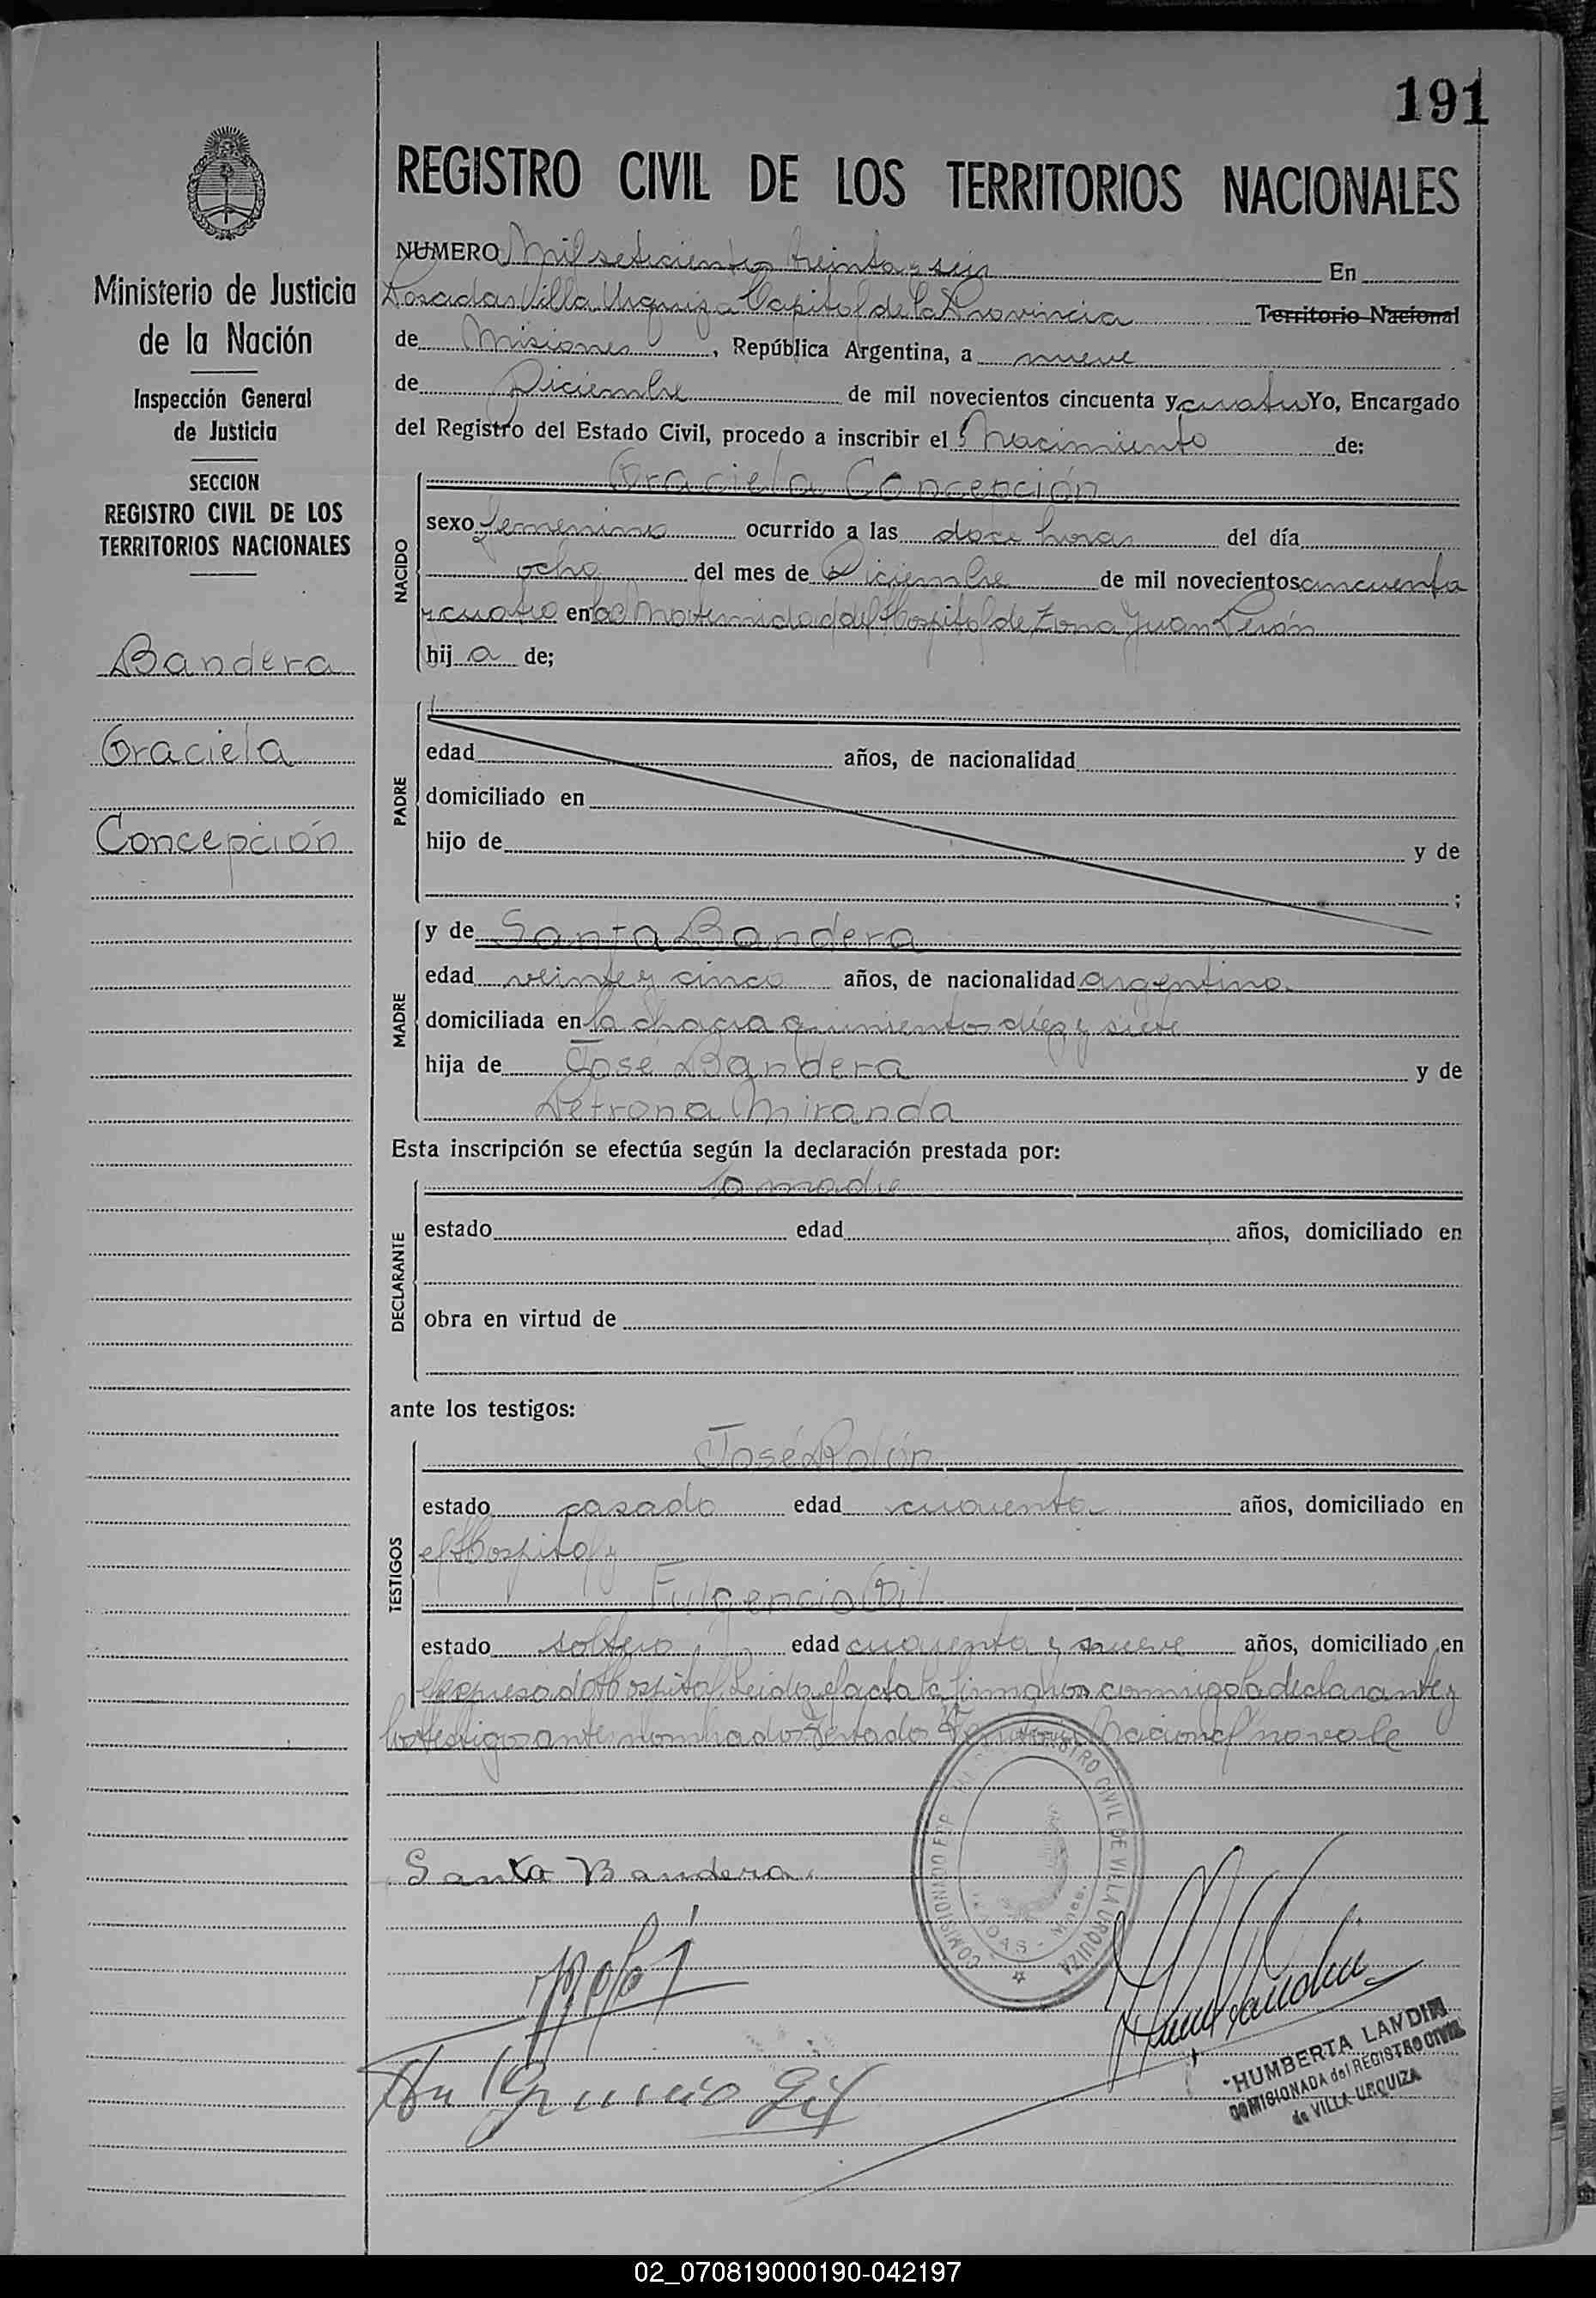 191
REGISTRO CIVIL DE LOS TERRITORIOS NACIONALES
Ministerio de Justicia
de la Nación
Inspección General
de Justicia
SECCION
REGISTRO CIVIL DE LOS
TERRITORIOS NACIONALES
Bandera
Graciela
Concepción
NUMERO Mil setecientos treinta y seis En
Posadas Villa Urquiza Capital de la Provincia Territorio Nacional
de Misiones, República Argentina, a nueve
de Diciembre de mil novecientos cincuenta y cuatro Yo, Encargado
del Registro del Estado Civil, procedo a inscribir el Nacimiento de:
NACIDO
Graciela Concepción
sexo femenino ocurrido a las doce horas del día
ocho del mes de Diciembre de mil novecientos cincuenta
y cuatro en la Maternidad del Hospital de Zona Juan Perón
hij a de;
PADRE
edad años, de nacionalidad
domiciliado en
hijo de y de
;
MADRE
y de Santa Bandera
edad veinte y cinco años, de nacionalidad argentina
domiciliada en la chacra quinientos diez y siete
hija de José Bandera y de
Petrona Miranda
Esta inscripción se efectúa según la declaración prestada por:
DECLARANTE
la madre
estado edad años, domiciliado en
obra en virtud de
ante los testigos:
TESTIGOS
José Rolón
estado casado edad cuarenta años, domiciliado en
el Hospital y
Fulgencio Gil
estado soltero edad cuarenta y nueve años, domiciliado en
el expresado Hospital. Leida el acta la firmaron conmigo la declarante y
los testigos ante nombrados. Testado "Territorio Nacional" no vale
Santa Bandera
COMISIONADO REGISTRO CIVIL DE VILLA URQUIZA
Fulgencio Gil
HUMBERTA LANDIN
COMISIONADA del REGISTRO CIVIL
de VILLA URQUIZA
02_070819000190-042197